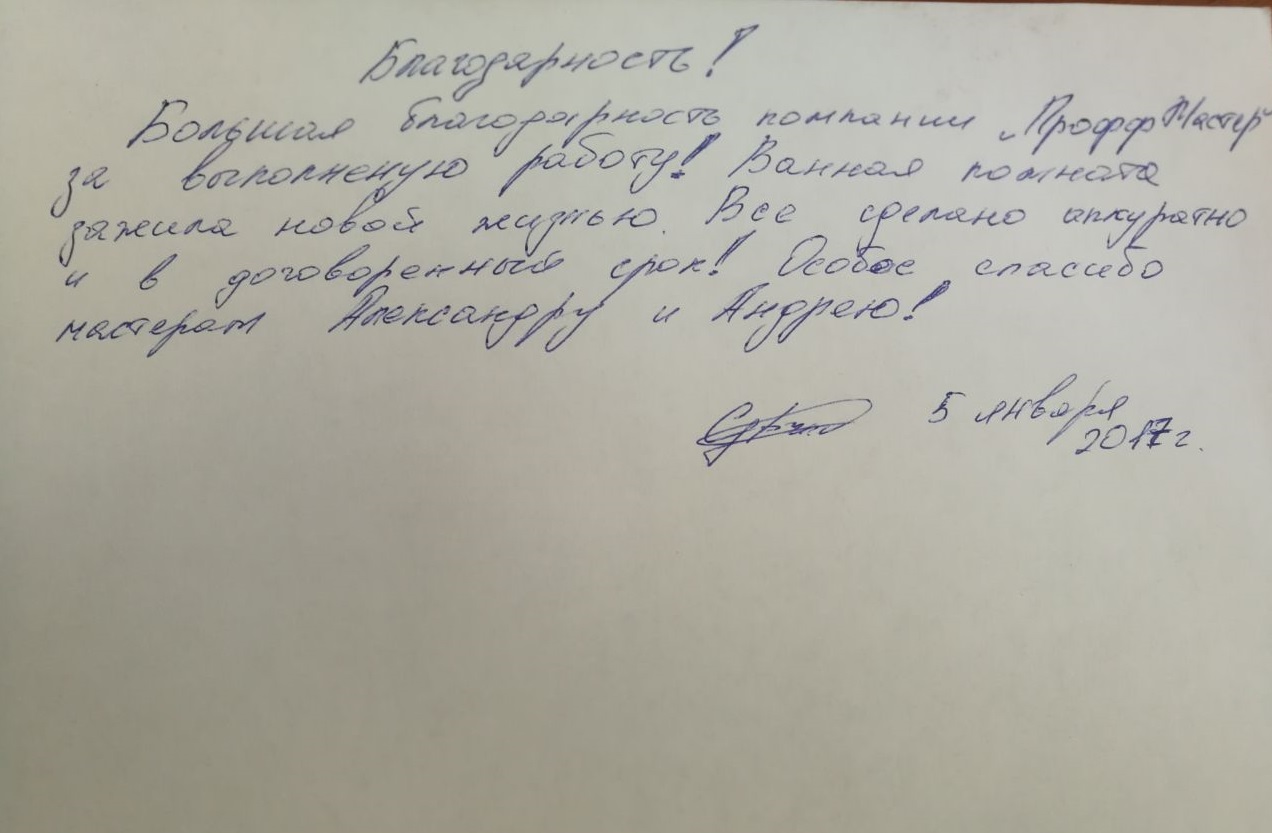 Благодарность!
Большая благодарность компании „Профф Мастер"
за выполненую работу! Ванная комната
зажила новой жизнью. Все сделано аккуратно
и в договоренный срок! Особое спасибо
мастерам Александру и Андрею!
5 января
2017 г.